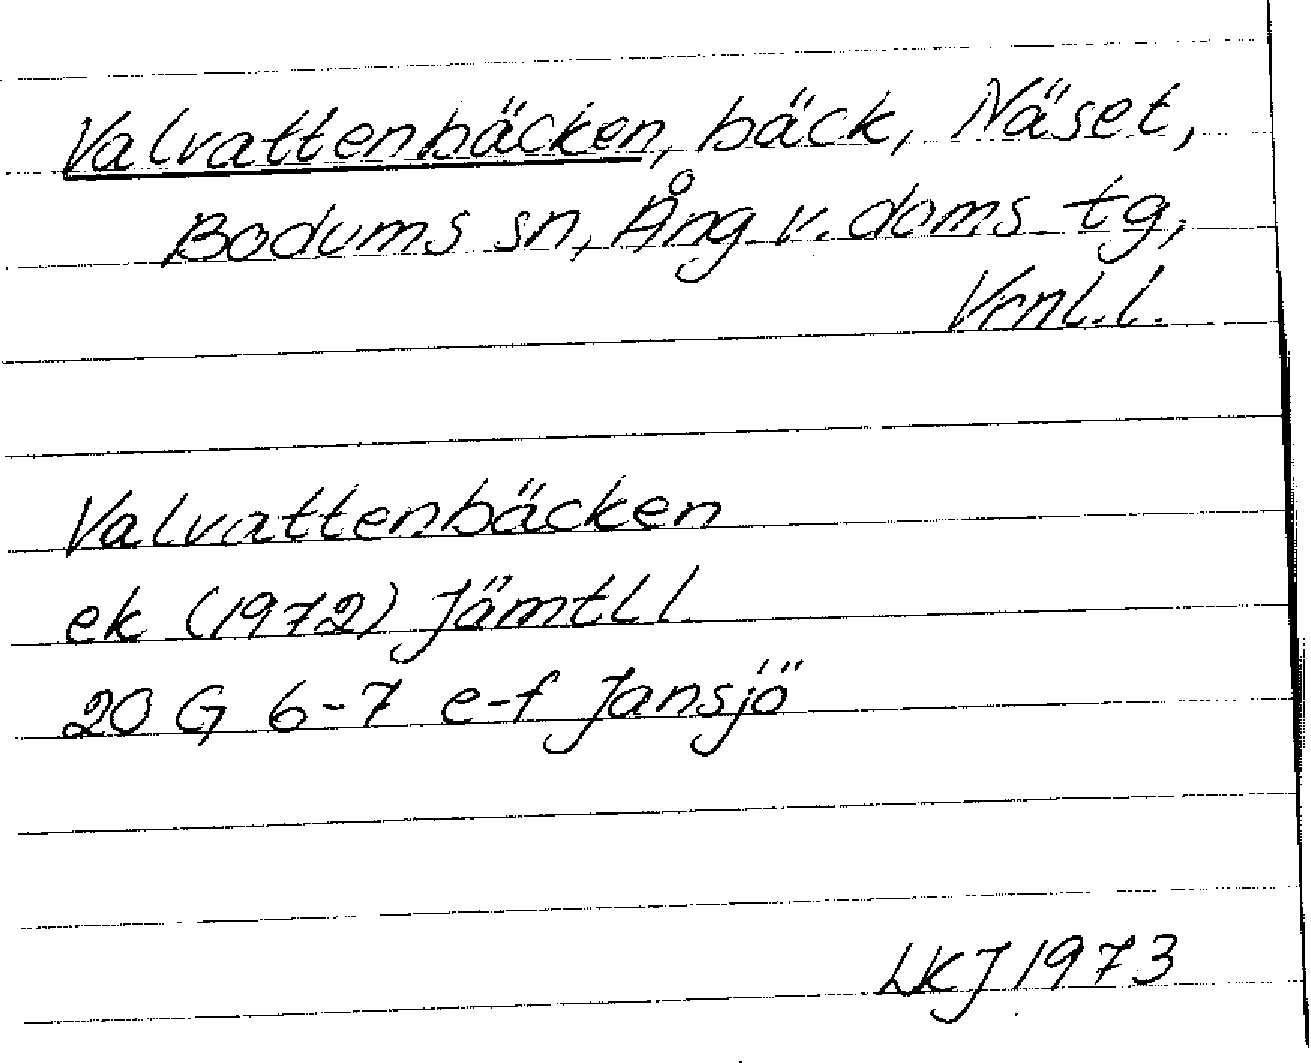 Valvattenbäcken, bäck, Näset,
Bodums sn, Ång v. doms tg,
Vrnl.l.
Valvattenbäcken
ek (1972) Jämtl l
20 G 6-7 e-f Jansjö
LKJ 1973